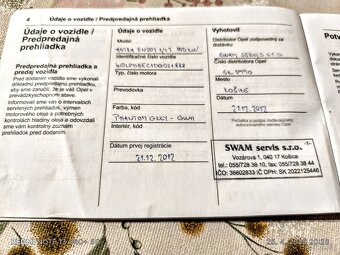 4
Údaje o vozidle / Predpredajná prehliadka
Údaje o vozidle /
Predpredajná
prehliadka
Predpredajná prehliadka a
predaj vozidla
Pred dodaním vozidla sme vykonali
dôkladnú predpredajnú prehliadku,
aby sme zaručili, že je váš Opel v
prevádzkyschopnom stave.
Informovali sme vás o intervaloch
servisných prehliadok, spotrebe
motorového oleja a potrebných
kontrolách hladiny oleja a odovzdali
sme vám kontrolný zoznam
prehliadok pred dodaním.
Údaje o vozidle
Model
Identifikačné číslo vozidla
Typ, číslo motora
Prevodovka
Farba, kód
PHANTOM GREY -
Interiér, kód
Dátum prvej registrácie
21.12.2012
Vyhotovil
Distribútor Opel zodpovedný za
dodávku
Číslo distribútora Opel
Miesto
KOŠICE
Dátum
21.12.2012
SWAM servis s.r.o.
Vozárova 1, 040 17 Košice
tel.: 055/728 38 10, fax: 055/728 38 44
IČO: 36602833 IČ DPH: SK 2022125446